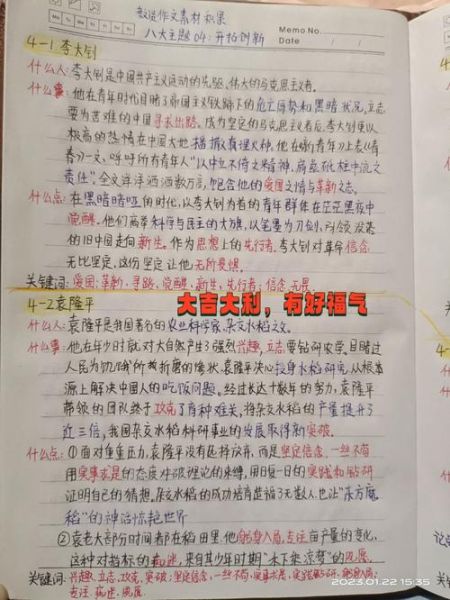 作文素材积累
Memo No.
Mo Tu We Th Fr Sa Su
八大主题04:开拓创新
Date / /
4-1 李大钊
什么人:李大钊是中国共产主义运动的先驱、伟大的马克思主义者。
什么事:他在青年时代目睹了帝国主义铁蹄下的危亡局势和黑暗状况,立志
要为苦难的中国寻求出路。成为坚定的马克思主义者后,李大钊更以
极高的热情在中国大地播撒真理火种。他在《新青年》上发表《青
春》一文,呼吁所有青年人"以中立不倚之精神,肩兹砥柱中流之
责任",全文洋洋洒洒数万言,饱含他的爱国之情与革新之志。
什么点:在黑暗喑哑的时代,以李大钊为首的青年群体在茫茫黑夜中
觉醒。他们高举科学与民主的大旗,以笔墨为刀剑,引领
的旧中国走向新生。作为思想上的先行者,李大钊对革命信念
无比坚定,这份坚定让他无所畏惧。
关键词:爱国;革新;寻路;觉醒;新生;先行者;信念;无畏
大吉大利,有好福气
4-2 袁隆平
什么人:袁隆平是我国著名的农业科学家,杂交水稻之父。
什么事:他在年少时就对大自然产生了强烈兴趣,立志要钻研农学。目睹过
人民为饥饿所折磨的惨状,袁隆平决心投身水稻研究,从根本
源上解决中国人的吃饭问题。经过长达十数年的努力,袁隆平
带领的团队终于攻克了育种难关,将杂交水稻的产量提升了
近三倍,我国杂交水稻科研事业的发展取得新突破。
什么点:①面对重重压力,袁隆平没有选择放弃,而是坚定信念,一丝不苟
用实事求是的态度冲破理论的束缚,用日复一日的实践和钻研
证明自己的猜想。杂交水稻的成功培育造福了无数人,也让"东方魔
稻"的神话惊艳世界
②袁老大部分时间都在稻田里,他躬身入局,专注亩产量的变化,
这种对指标的,来自其少年时期"禾下乘凉梦"的
关键词:兴趣,立志,攻克,突破;坚定信念,一丝不苟,实事求是,实践钻研,躬身入局;
专注
2023.01.22 15:35